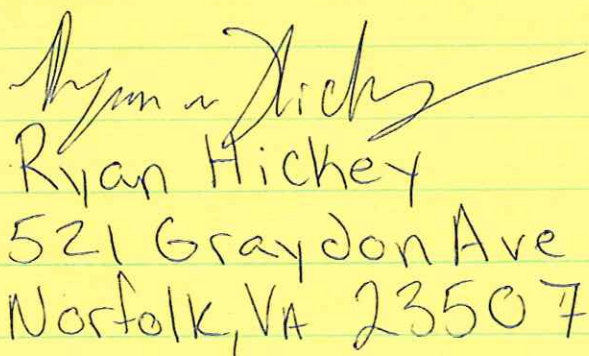 Ryan Hickey
Ryan Hickey
521 Graydon Ave
Norfolk, VA 23507